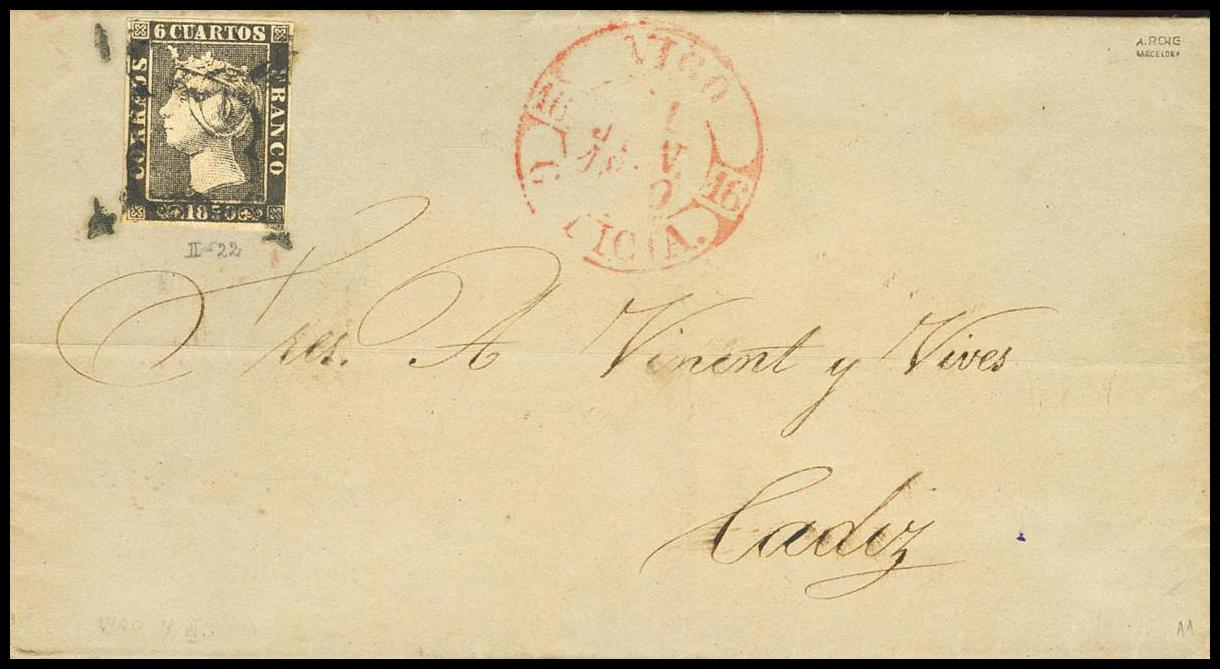 6 CUARTOS
CORREOS
FRANCO
1850
II-22
VIGO
16
16
A. ROIG
BARCELONA
Sres. A Vinent y Vives
Cadiz
A1